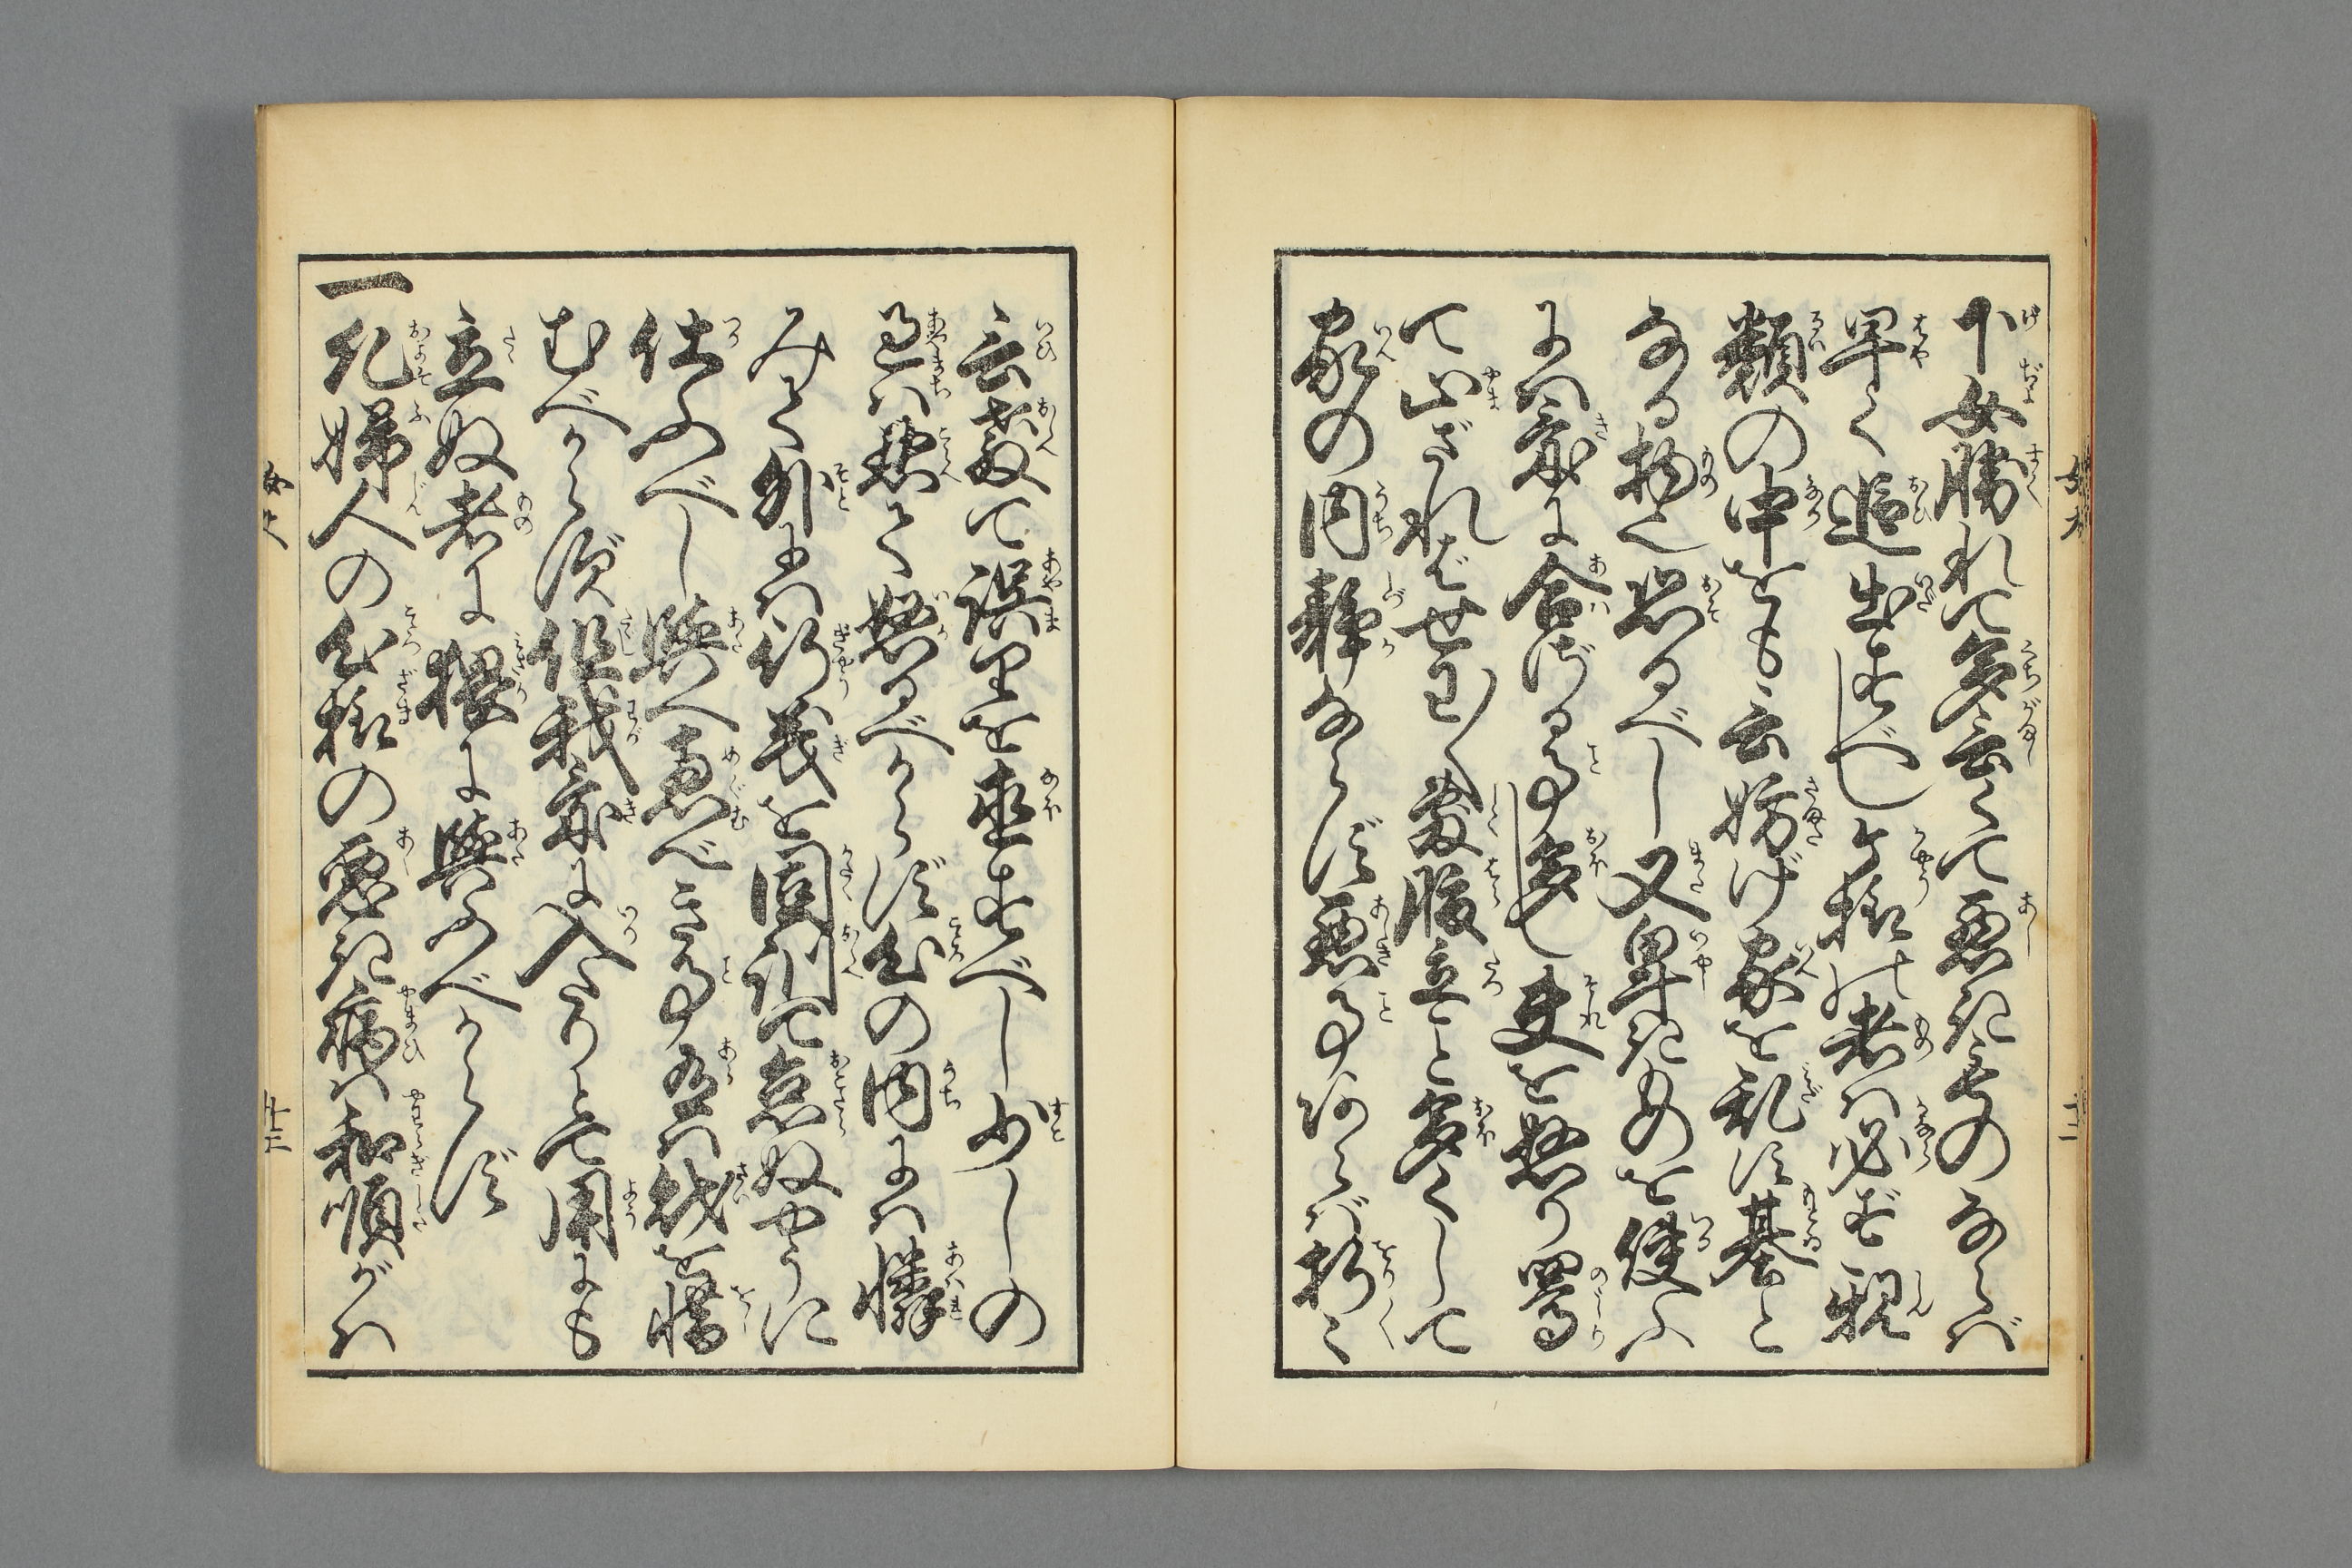 下女勝れて多言くて悪きものならバ
早く追出すべし。ケ様の者ハ必ず親
類の中をも云妨げ家を乱す基と
なる物也恐るべし又卑きものを使ふ
にハ気に合ざる事多し夫を怒り罵
て止ざれバせわ〳〵敷腹立こと多くして
家の内静ならず悪事あらバ折々
云教て誤りを直すべし少しの
過ハ忍て怒るべからず心の内にハ憐
みて外にハ行義を固訓て怠ぬやうに
仕ふべし與へ恵べき事あらハ財を惜
むべからず但我気に入たりとて用にも
立ぬ者に猥に與ふべからず
一凡婦人の心様の悪き病ハ和順がハ